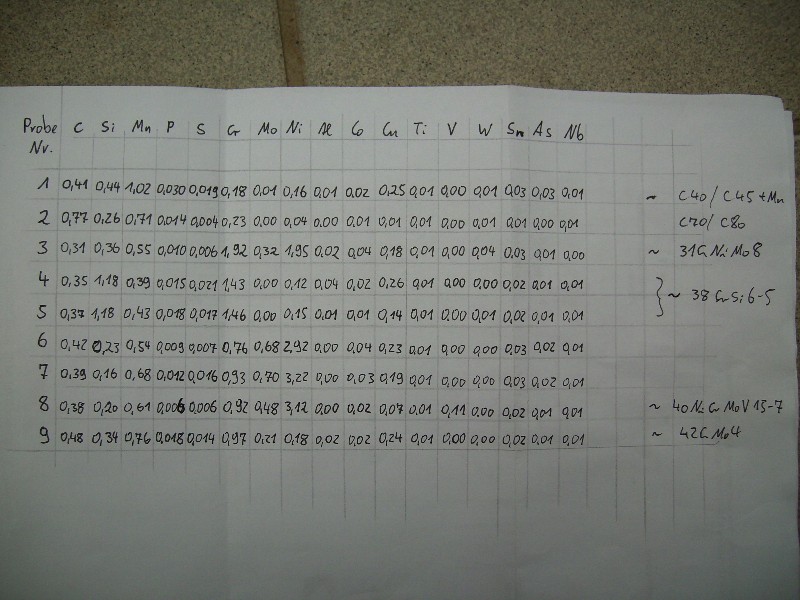 Probe C Si Mn P S Cr Mo Ni Al Co Cu Ti V W Sn As Nb
Nr.
1 0,41 0,44 1,02 0,030 0,019 0,18 0,01 0,16 0,01 0,02 0,25 0,01 0,00 0,01 0,03 0,03 0,01 ~ C40/C45+Mn
2 0,77 0,26 0,71 0,014 0,004 0,23 0,00 0,04 0,00 0,01 0,01 0,01 0,00 0,01 0,01 0,00 0,01 C70/C80
3 0,31 0,36 0,55 0,010 0,006 1,92 0,32 1,95 0,02 0,04 0,18 0,01 0,00 0,04 0,03 0,01 0,00 ~ 31CrNiMo8
4 0,35 1,18 0,39 0,015 0,021 1,43 0,00 0,12 0,04 0,02 0,26 0,01 0,00 0,00 0,02 0,01 0,01
} ~ 38CrSi6-5
5 0,37 1,18 0,43 0,018 0,017 1,46 0,00 0,15 0,01 0,01 0,14 0,01 0,00 0,01 0,02 0,01 0,01
6 0,42 0,23 0,54 0,009 0,007 0,76 0,68 2,92 0,00 0,04 0,23 0,01 0,00 0,00 0,03 0,02 0,01
7 0,39 0,16 0,68 0,012 0,016 0,93 0,70 3,22 0,00 0,03 0,19 0,01 0,00 0,00 0,03 0,02 0,01
8 0,38 0,20 0,61 0,006 0,006 0,92 0,48 3,12 0,00 0,02 0,07 0,01 0,11 0,00 0,02 0,01 0,01 ~ 40NiCrMoV13-7
9 0,48 0,34 0,76 0,018 0,014 0,97 0,21 0,18 0,02 0,02 0,24 0,01 0,00 0,00 0,02 0,01 0,01 ~ 42CrMo4